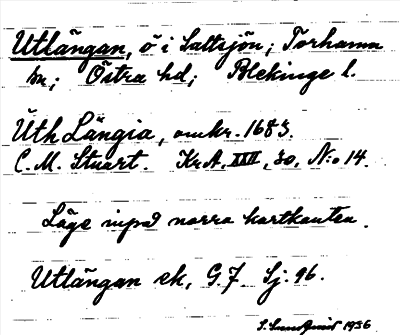 Utlängan, ö i Saltsjön; Torhamn
sn; Östra hd; Blekinge l.
Üth Längia, omkr. 1683.
C. M. Stuart. Kr.A. XXII, 30, N:o 14.
Läge inpå norra kartkanten.
Utlängan ek, G.7 Sj. 96.
1936